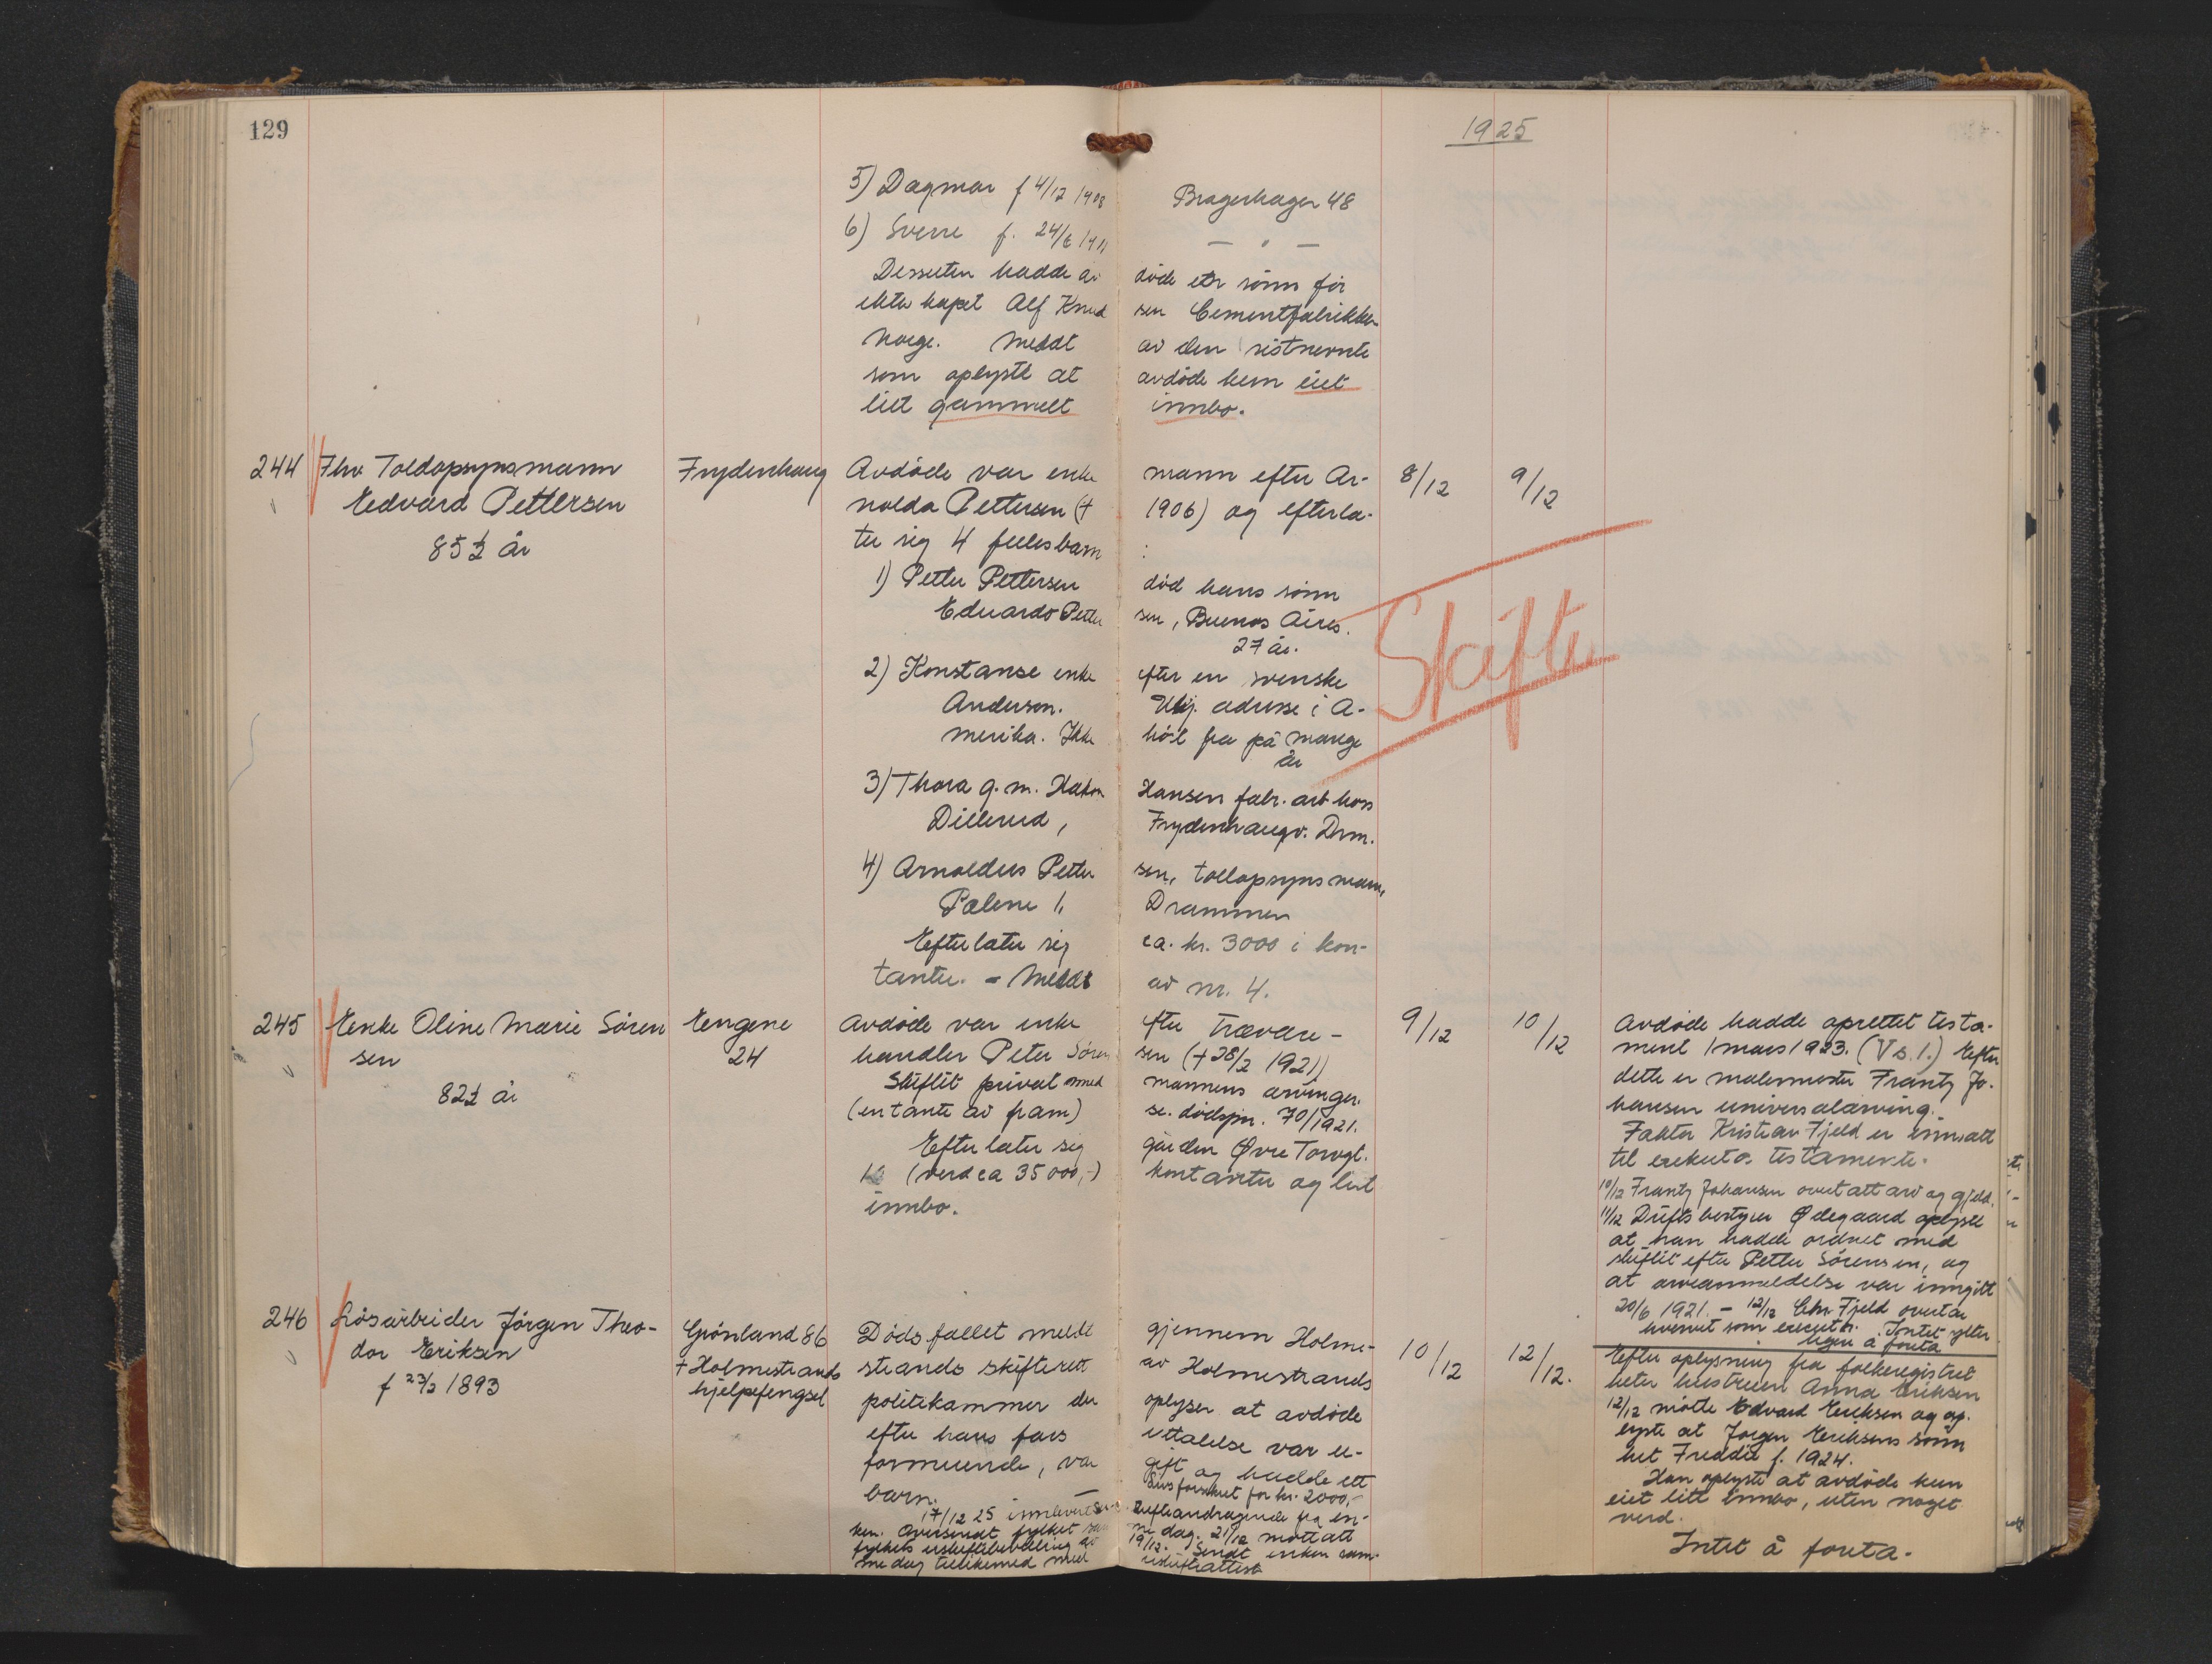 129
1925
5) Dagmar f 4/12 1908 Bragerhagen 48
6) Sverre f. 24/6 1911 — " —
Dessuten hadde av døde en sønn før
ekteskapet Alf Knud sen Cementfabrikken
Norge. Meldt av den sistnevnte
som oplyste at avdøde kun eiet
litt gammelt innbo.
244 Fhv Toldopsynsmann Frydenhaug Avdøde var enke mann efter Ar- 8/12 9/12
Edvard Pettersen nolda Pettersen († 1906) og efterla-
85½ år ter sig 4 fellesbarn :
1) Petter Pettersen død hans sønn
Eduardo Petter sen, Buenos Aires.
27 år.
2) Konstanse enke efter en svenske
Anderson. Ubj. adresse i A-
merika. Ikke hørt fra på mange
år
3) Thora g. m. Hakon Hansen fabr. arb hos
Dillerud, Frydenhaugv. Drm.
4) Arnoldus Petter sen, tollopsynsmann,
Palene 1, Drammen
Efterlater sig ca. kr. 3000 i kon-
tanter. - Meldt av nr. 4.
Skifte
245 Enke Oline Marie Søren Engene Avdøde var enke efter trævare- 9/12 10/12
sen 24 handler Peter Søren sen (+ 28/2 1921)
82½ år Skiftet privat med mannens arvinger.
(en tante av fram) se. dødspr. 70/1921.
Efterlater sig gården Øvre Torvgt.
(verd ca 35 000,-) kontanter og litt
innbo.
Avdøde hadde oprettet testa-
ment 1 mars 1923. (V s. 1.) Efter
dette er malermester Frantz Jo-
hansen universalarving.
Faktor Kristian Fjeld er innsatt
til exekutor testamenti.
10/12 Frantz Johansen overtatt arv og gjeld.
11/12 Driftsbestyrer Ødegaard oplyste
at han hadde ordnet med
skiftet efter Petter Sørensen, og
at arveanmeldelse var inngitt
20/6 1921. - 12/12 Chr Fjeld overtar
hvervet som executor. Intet ytter
ligere å foreta
246 Løsarbeider Jørgen Theo- Grønland 86 Dødsfallet meldt gjennem Holme- 10/12 12/12.
dor Eriksen + Holmestrands strands skifterett av Holmestrands
f 23/2 1893 hjelpefengsel politikammer der oplyser at avdøde
efter hans fars uttalelse var u-
formuende, var gift og hadde ett
barn. — Livsforsikret for kr. 2000,-
17/12 25 innlevert uskifteandragende fra en-
ken. Oversendt fylket sam me dag. 21/12 mottatt
fylkets uskiftebevilling av 19/12. Sendt enken sam-
me dag tillikemed uskifteattest
Efter oplysning fra folkeregistret
heter hustruen Anna Eriksen
12/12 møtte Edvard Eriksen og op-
lyste at Jørgen Eriksens sønn
het Freddie f. 1924.
Han oplyste at avdøde kun
eiet litt innbo, uten noget
verd.
Intet å foreta.